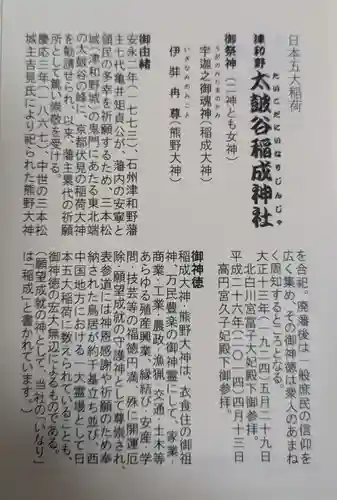 日本五大稲荷
津和野
太皷谷稲成神社
たいこだにいなりじんじゃ
御祭神（二神とも女神）
うがのみたまのかみ
宇迦之御魂神（稲成大神）
いざなみのみこと
伊弉冉尊（熊野大神）
御由緒
安永二年（一七七三）、石州津和野藩
主七代亀井矩貞公が、藩内の安寧と
領民の多幸を祈願するため、三本松
城（津和野城）の鬼門にあたる東北端
の太皷谷の峰に、京都伏見の稲荷大神
を勧請せられ、以来、藩主累代の祈願
所として篤い崇敬を受ける。
慶応三年（一八六七）、中世の三本松
城主吉見氏により祀られた熊野大神
を合祀。廃藩後は一般庶民の信仰を
広く集め、その御神徳は衆人のあまね
く周知するところとなる。
大正十三年（一九二四）五月二十九日
北白川宮冨子大妃殿下御参拝。
平成二十六年（二〇一四）四月十三日
高円宮久子妃殿下御参拝。
御神徳
稲成大神・熊野大神は、衣食住の御祖
神、万民豊楽の御神霊にして、家業・
商業・工業・農政・漁猟・交通・土木等
あらゆる殖産興業、縁結び・安産・学
問・技芸等の福徳円満、殊に開運厄
除・願望成就の守護神として尊崇され、
表参道には神恩感謝や祈願のため奉
納された鳥居が約千基立ち並び、西
中国地方における一大霊場として日
本五大稲荷に数えられているとも、
御神徳の宏大無辺によるものである。
（願望成就の神として、当社のいなり
は「稲成」と書かれています。）